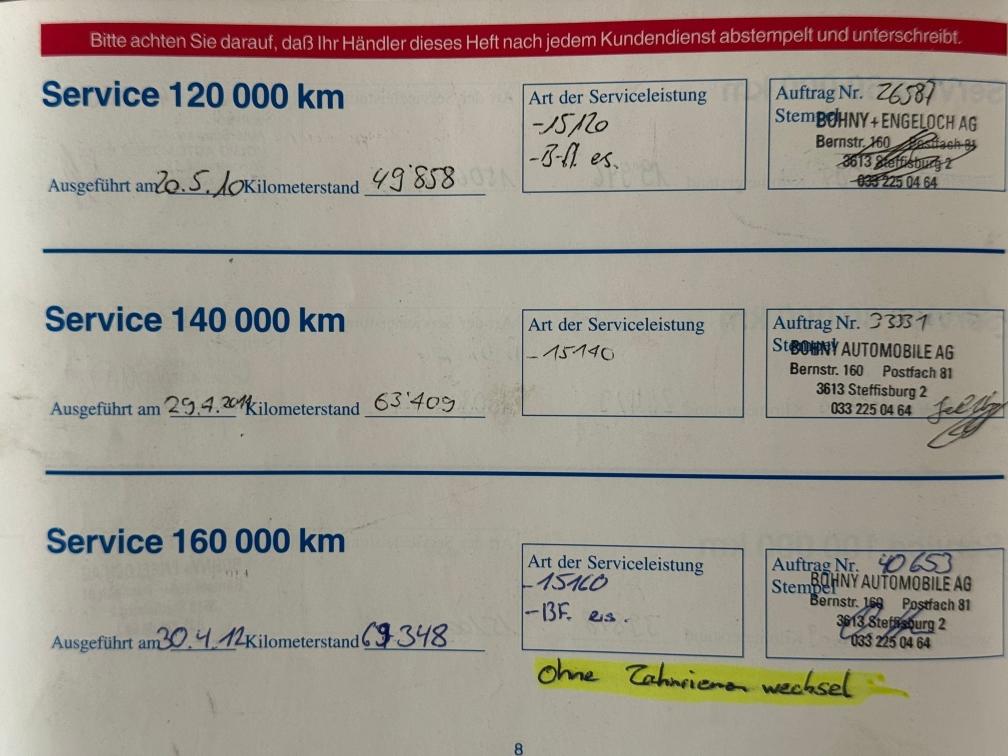 Bitte achten Sie darauf, daß Ihr Händler dieses Heft nach jedem Kundendienst abstempelt und unterschreibt.
Service 120 000 km
Ausgeführt am 20.5.10 Kilometerstand 49'858
Art der Serviceleistung
-15120
-B-fl. es.
Auftrag Nr. 26587
Stempel
BOHNY+ENGELOCH AG
Bernstr. 160 Postfach 81
3613 Steffisburg 2
033 225 04 64
Service 140 000 km
Ausgeführt am 29.4.2011 Kilometerstand 63'409
Art der Serviceleistung
-15140
Auftrag Nr. 33331
Stempel
BOHNY AUTOMOBILE AG
Bernstr. 160 Postfach 81
3613 Steffisburg 2
033 225 04 64
Service 160 000 km
Ausgeführt am 30.4.12 Kilometerstand 69348
Art der Serviceleistung
-15160
-BF. es.
Auftrag Nr. 40653
Stempel
BOHNY AUTOMOBILE AG
Bernstr. 160 Postfach 81
3613 Steffisburg 2
033 225 04 64
Ohne Zahnriemen wechsel
8